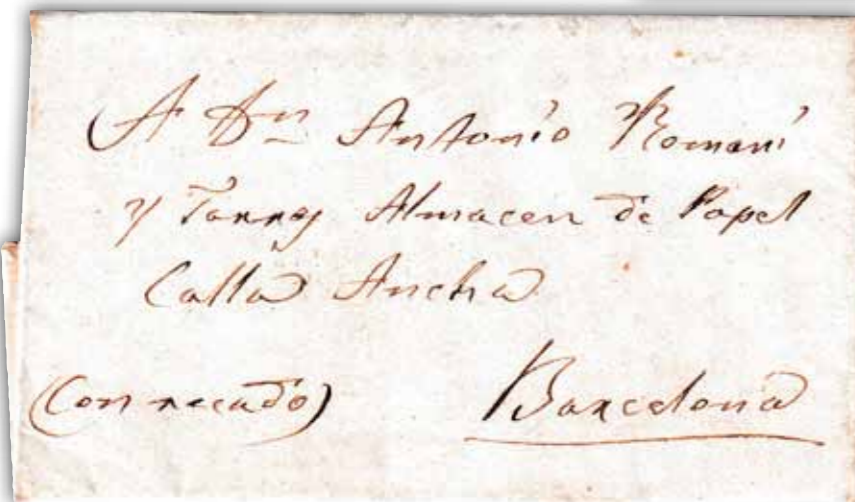 A Dn Antonio Romani
y Torres Almacen de Papel
Calla Ancha
(Con recado) Barcelona